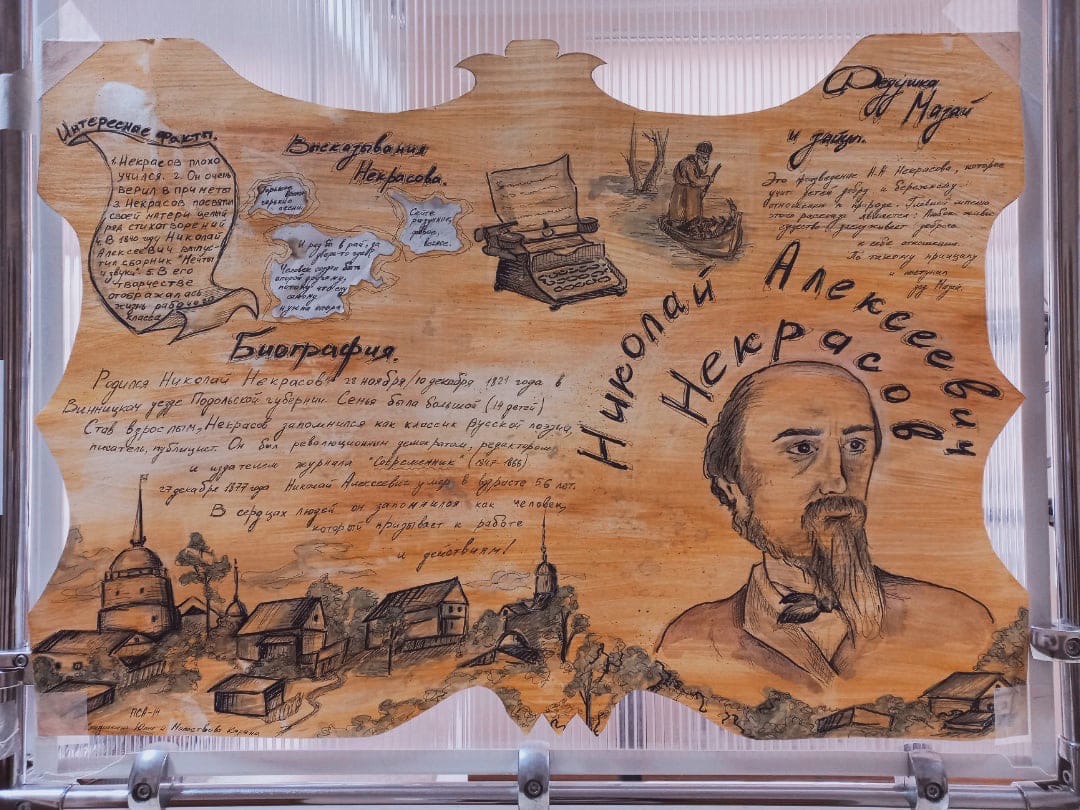 Интересные факты.
1. Некрасов плохо
учился. 2. Он очень
верил в приметы
3. Некрасов посвятил
своей матери целый
ряд стихотворений
4. В 1840 году, Николай
Алексеевич выпус-
тил сборник "Мечты
и звуки" 5. В его
творчестве
отображалась
жизнь рабочего
класса.
Высказывания
Некрасова.
Сейте
разумное,
доброе,
вечное.
И рад бы в рай, да
дверь-то где?
Человек создан быть
опорой другому,
потому что ему
самому
нужна опора
Дедушка
Мазай
и зайцы.
Это произведение Н.А Некрасова, которое
учит детей добру и бережному
отношению к природе. Главной мыслью
этого рассказа является: Любое живое
существо заслуживает доброго
к себе отношения.
По такому принципу
и поступил
дед Мазай.
Николай Алексеевич
Некрасов
Биография.
Родился Николай Некрасов 28 ноября/10 декабря 1821 года в
Винницком уезде Подольской губернии. Семья была большой (14 детей)
Став взрослым, Некрасов запомнился как классик русской поэзии,
писатель, публицист. Он был революционным демократом, редактором
и издателем журнала "Современник" (1847-1866)
27 декабря 1877 года Николай Алексеевич умер в возрасте 56 лет.
В сердцах людей он запомнился как человек,
который призывает к работе
и действиям!
ПСА-14
Юлия и Карина